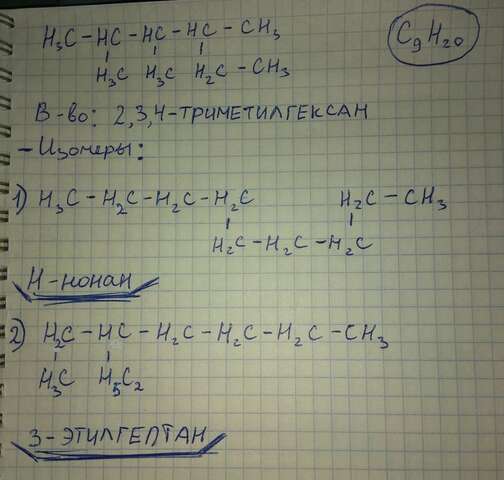 H₃C - HC - HC - HC - CH₃
H₃C H₃C H₂C - CH₃
C₉H₂₀
В-во: 2,3,4-ТРИМЕТИЛГЕКСАН
- Изомеры:
1) H₃C - H₂C - H₂C - H₂C H₂C - CH₃
H₂C - H₂C - H₂C
Н-нонан
2) H₂C - HC - H₂C - H₂C - H₂C - CH₃
H₃C H₅C₂
3-ЭТИЛГЕПТАН